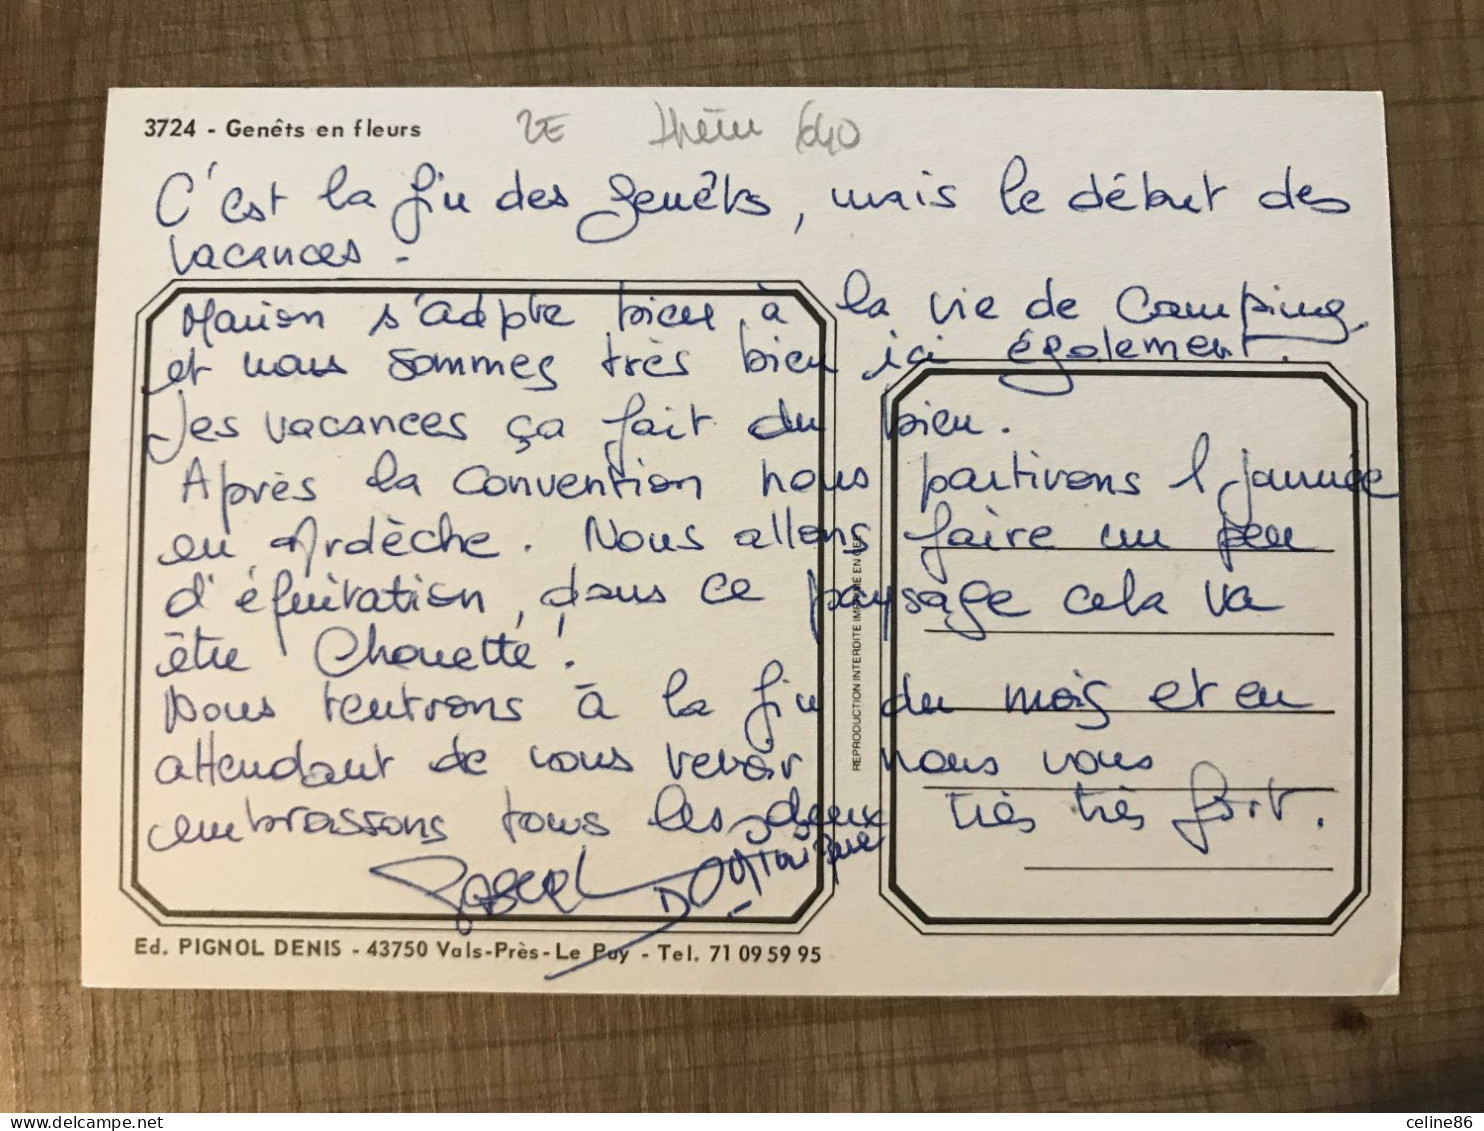 3724 - Genêts en fleurs
2E thèm 640
C'est la fin des genêts, mais le début des
vacances -
Marion s'adpte bien à la vie de Camping,
et nous sommes très bien ici également.
Les vacances ça fait du bien.
Après la Convention nous partirons 1 journée
en Ardèche. Nous allons faire un peu
d'équitation, dans ce paysage cela va
être Chouette !
Nous rentrons à la fin du mois et en
attendant de vous revoir nous vous
embrassons tous les deux très très fort.
Pascal Dominique
REPRODUCTION INTERDITE IMPRIMÉ EN CEE
Ed. PIGNOL DENIS - 43750 Vals-Près-Le Puy - Tel. 71 09 59 95
celine86